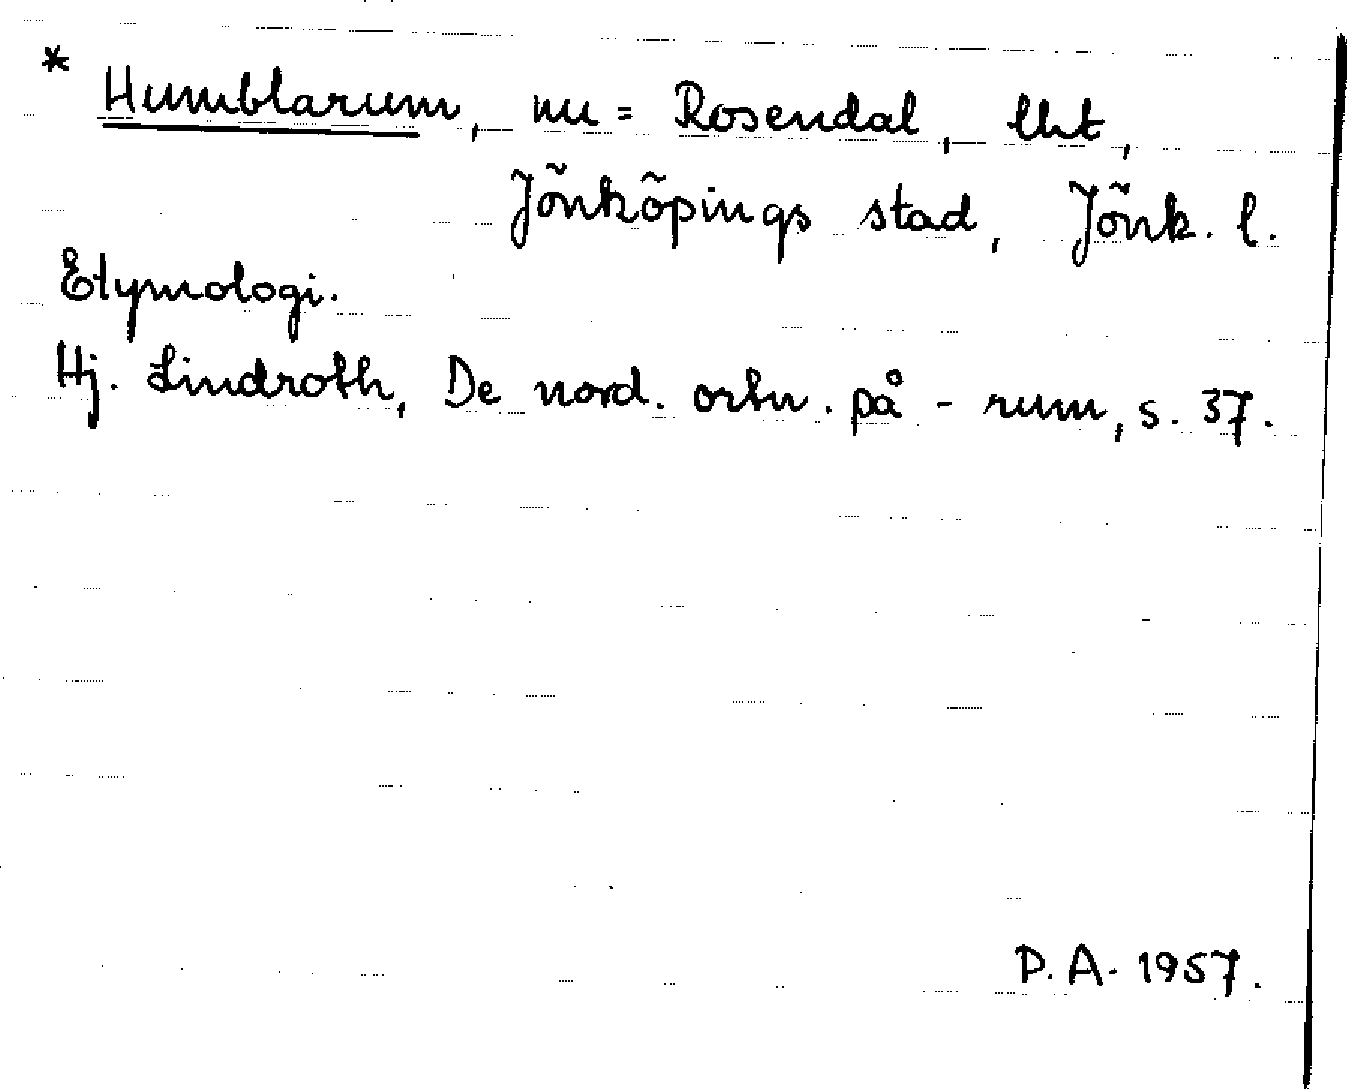 * Humblarum, nu = Rosendal, lht,
Jönköpings stad, Jönk. l.
Etymologi.
Hj. Lindroth, De nord. ortn. på - rum, s. 37.
P. A. 1957.